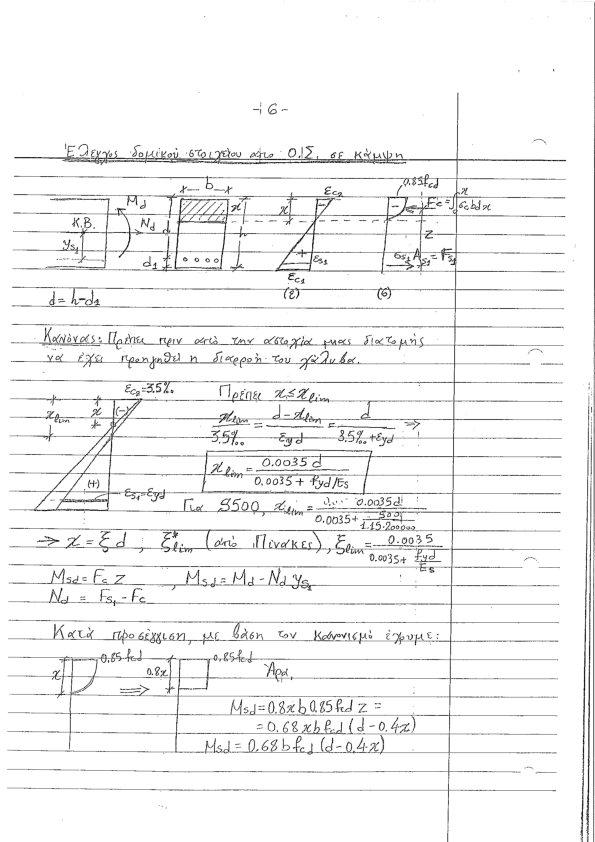 -16-
Έλεγχος δομικού στοιχείου στο Ο.Ι.Σ. σε κάμψη
b
x
εc2
x
0.85fcd
Fc = ∫₀ˣ σc b dx
Md
Κ.Β.
Nd
ys1
d1
εs1
εc1
z
σs1 As1 = Fs1
d = h-d1
(ε)
(σ)
Κανόνας: Πρέπει πριν από την αστοχία μιας διατομής
να έχει προηγηθεί η διαρροή του χάλυβα.
εc2=3.5‰
xlim
x
(-)
(+)
εs1=εyd
Πρέπει x ≤ xlim
xlim/3.5‰ = (d-xlim)/εyd = d/(3.5‰+εyd) ⇒
xlim = 0.0035 d/(0.0035 + fyd/Es)
Για S500, xlim = 0.0035d/(0.0035+500/(1.15·200000))
⇒ x = ξ d , ξ*lim (από Πίνακες), ξlim = 0.0035/(0.0035+fyd/Es)
Msd = Fc z , Msd = Md - Nd ys1
Nd = Fs1 - Fc
Κατά προσέγγιση, με βάση τον κανονισμό έχουμε:
x
0.85fcd
⇒
0.8x
0.85fcd
Άρα,
Msd = 0.8x b 0.85 fcd z =
= 0.68 x b fcd (d-0.4x)
Msd = 0.68 b fcd (d-0.4·x)